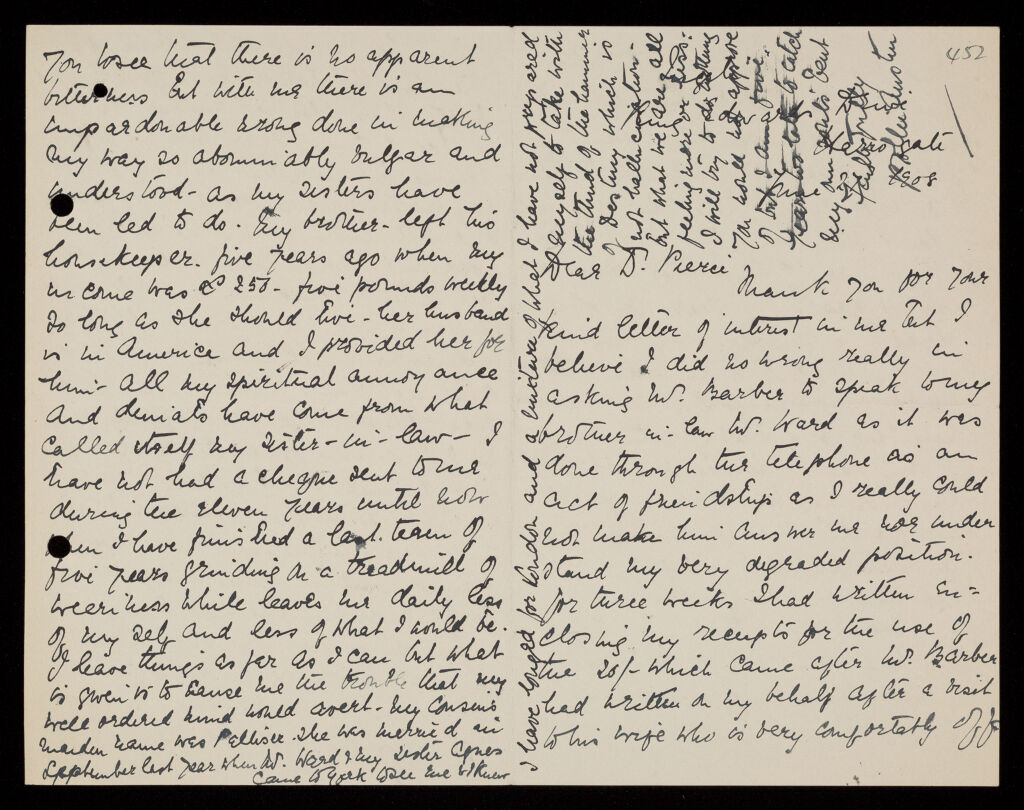 452
Harrogate
June 1908
Dear Dr. Pierce
Thank you for your
kind letter of interest in me but I
believe I did no wrong really in
asking Mr. Barber to speak to my
brother in-law Mr. Ward as it was
done through the telephone as an
act of friendship as I really could
not make him answer me nor under
stand my very degraded position.
For three weeks I had written en=
closing my receipts for the use of
the 20/- which came after Mr. Barber
had written on my behalf after a visit
to his wife who is very comfortably off
You to see that there is no apparent
bitterness but with me there is an
unpardonable wrong done in making
my way so abominably vulgar and
understood - as my sisters have
been led to do. My brother - left his
housekeeper - five years ago when my
income was £250 - five pounds weekly
so long as she should live - her husband
is in America and I provided her for
him - all my spiritual annoyance
and denials have come from what
called itself my sister-in-law - I
have not had a cheque sent to me
during the eleven years until now
when I have finished a last team of
five years grinding on a treadmill of
weariness while leaves me daily less
of my self and less of what I would be.
I leave things as far as I can but what
is given is to cause me the trouble that my
well ordered mind would avert - my cousin's
maiden name was Pelliser she was married in
September last year when Mr. Ward & my sister Agnes
came to York to see me & I knew
I have longed for London and a furniture of what I have not surveyed
myself to take with
the thud of the hammer
of Destiny which is
not hallucination -
but what we are all
feeling more or less:
I will try to do nothing
you would not approve
of but I am
to catch
my